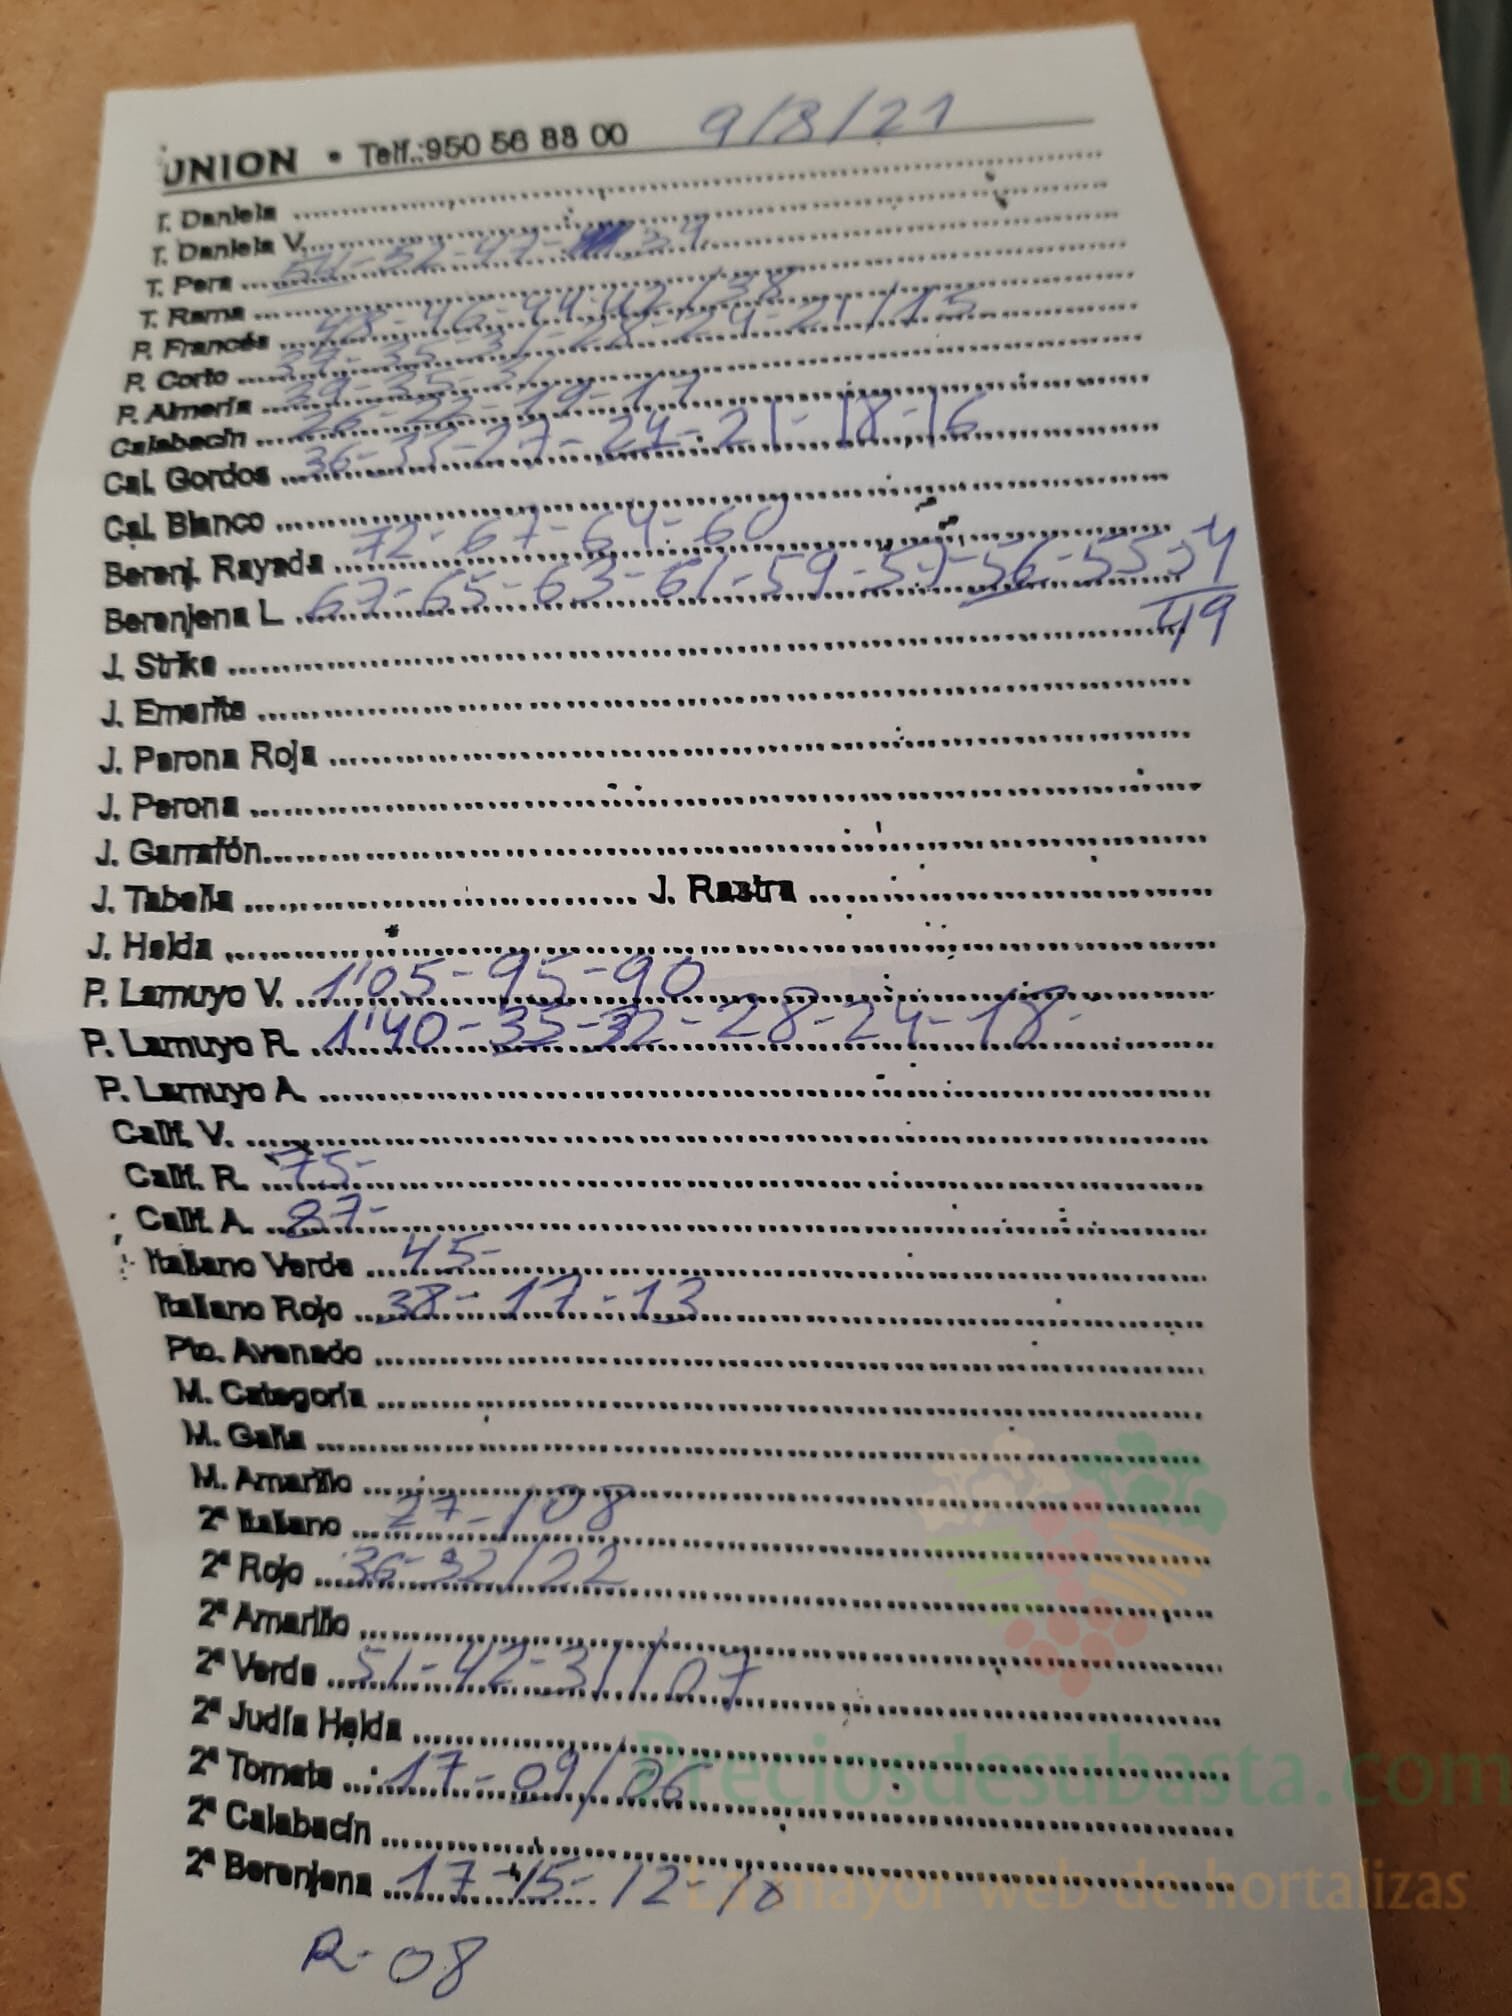 UNION • Telf.:950 56 88 00 9/8/21
T. Daniela
T. Daniela V.
T. Pera 52-47- 34
T. Rama
P. Francés 48-46-44-42/38
P. Corto 37-35-31-28-24-21/15
P. Almería 39-35-31
Calabacín 26-22-19-17
Cal. Gordos 36-33-27-24-21-18-16
Cal. Blanco
Berenj. Rayada 72-67-64-60
Berenjena L 67-65-63-61-59-57-56-55-54
49
J. Strike
J. Emerite
J. Perona Roja
J. Perona
J. Garrafón
J. Tabella J. Rastra
J. Helda
P. Lamuyo V. 1'05-95-90
P. Lamuyo R. 1'40-35-32-28-24-18-
P. Lamuyo A.
Calif. V.
Calif. R. 75-
Calif. A. 87-
Italiano Verde 45-
Italiano Rojo 38-17-13
Pto. Avenado
M. Categoría
M. Galia
M. Amarillo
2ª Italiano 27-/08
2ª Rojo 36-32/22
2ª Amarillo
2ª Verde 51-42-31/07
2ª Judía Helda
2ª Tomate 17-09/06
2ª Calabacín
2ª Berenjena 17-15-12-10
R-08
Preciosdesubasta.com
La mayor web de hortalizas